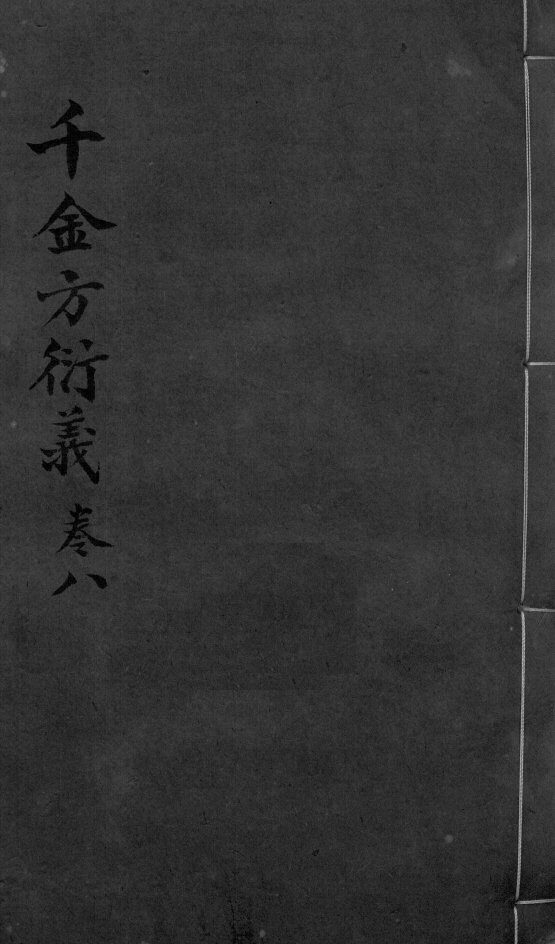 千金方衍義 卷八